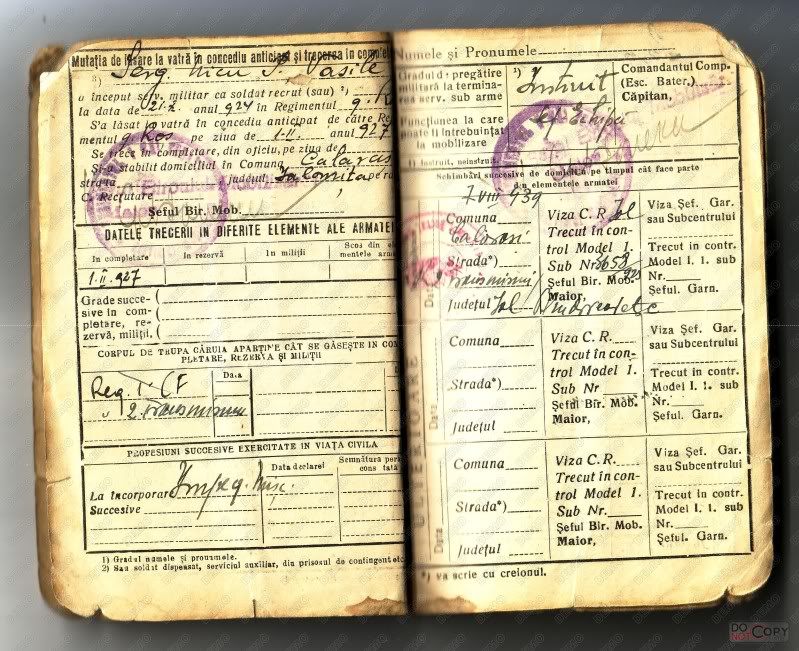 Mutația de lăsare la vatră în concediu anticipat și trecerea în comple
Serg. Nicu P. Vasile
a început serv. militar ca soldat recrut (sau) ²)
la data de 21.X. anul 924 în Regimentul 9. R
S'a lăsat la vatră în concediu anticipat de către Re
mentul 9 Ros pe ziua de 1-II. anul 927
Se trece în completare, din oficiu, pe ziua de
Și-a stabilit domiciliul în Comuna Calaras
strada județul Ialomita
C. Recrutare
Șeful Bir. Mob.
DATELE TRECERII IN DIFERITE ELEMENTE ALE ARMATEI
In completare
In rezervă
In miliții
Scos din el
mentele arma
1.II.927
Grade succe-
sive în com-
pletare, re-
zervă, miliții.
CORPUL DE TRUPA CĂRUIA APARȚINE CÂT SE GĂSEȘTE IN COM
PLETARE, REZERVA ȘI MILIȚII
Data
Reg. 1 CF
" 2.
PROFESIUNI SUCCESIVE EXERCITATE IN VIAȚA CIVILA
Data declarei
Semnătura per
cons tată
La încorporare
Succesive
1) Gradul numele și pronumele.
2) Sau soldat dispensat, serviciul auxiliar, din prisosul de contingent etc
Numele și Pronumele
Gradul de pregătire
militară la termina-
rea serv. sub arme
¹) Instruit
Comandantul Comp.
(Esc. Bater.)
Căpitan,
Funcțiunea la care
poate fi întrebuințat
la mobilizare
șef Echipă
1) Instruit, neinstruit.
Schimbări succesive de domiciliu pe timpul cât face parte
din elementele armatei
7 VIII 939
Data
Comuna
Calarasi
Strada*)
Județul Ial
Viza C. R. Ial
Trecut în con-
trol Model 1.
Sub Nr.
Șeful Bir. Mob.
Maior,
Viza Șef. Gar.
sau Subcentrului
Trecut în contr.
Model I. 1. sub
Nr.
Șeful. Garn.
Data
Comuna
Strada*)
Județul
Viza C. R.
Trecut în con-
trol Model 1.
Sub Nr
Șeful Bir. Mob.
Maior,
Viza Șef. Gar.
sau Subcentrului
Trecut in contr.
Model I. 1. sub
Nr.
Șeful. Garn.
Data
Comuna
Strada*)
Județul
Viza C. R.
Trecut în con-
trol Model 1.
Sub Nr.
Șeful Bir. Mob.
Maior,
Viza Șef. Gar.
sau Subcentrului
Trecut in contr.
Model I. 1. sub
Nr.
Șeful. Garn.
*) va scrie cu creionul.
DO NOT COPY